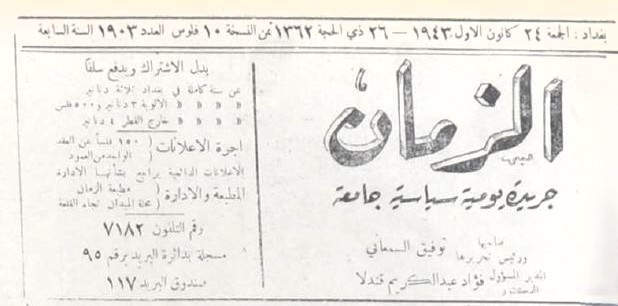 بغداد : الجمعة ٢٤ كانون الاول ١٩٤٣ — ٢٦ ذي الحجة ١٣٦٢ ثمن النسخة ١٠ فلوس العدد ١٩٠٣ السنة السابعة
الزمان
جريدة يومية سياسية جامعة
صاحبها
ورئيس تحريرها توفيق السمعاني
المدير المسؤول فؤاد عبدالكريم قندلا
بدل الاشتراك ويدفع سلفا
عن سنة كاملة في بغداد ثلاثة دنانير
» » » » الالوية ٣ دنانير و٥٠٠ فلس
» » » » خارج القطر ٤ دنانير
اجرة الاعلانات ( ١٥٠ فلسا عن العقد
الواحد من العمود
الاعلانات الدائمية يراجع بشأنها الادارة
المطبعة والادارة ( مطبعة الزمان
محلة الميدان تجاه القلعة
رقم التلفون ٧١٨٢
مسجلة بدائرة البريد برقم ٩٥
صندوق البريد ١١٧